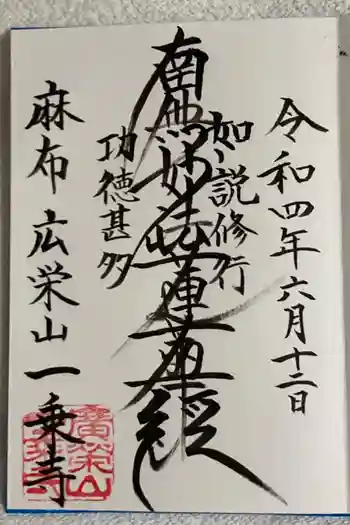 令和四年六月十二日
如説修行
南無妙法蓮華経
功徳甚多
麻布 広栄山 一乗寺
廣榮山
一乗寺